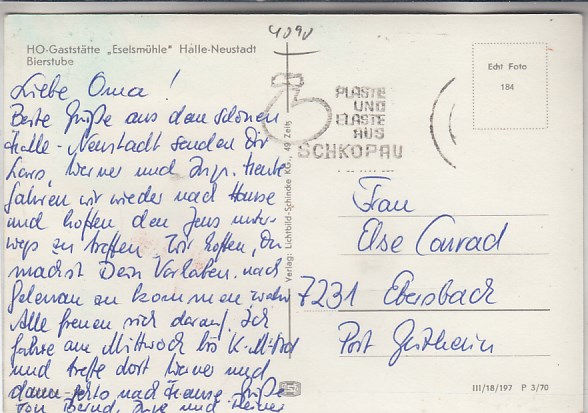 4090
HO-Gaststätte „Eselsmühle" Halle-Neustadt
Bierstube
Liebe Oma!
Beste Grüße aus dem schönen
Halle-Neustadt senden Dir
Lars, Werner und Heute
fahren wir wieder nach Hause
und hoffen den Jens unter-
wegs zu treffen. Wir hoffen, Du
machst Dein Vorhaben, nach
zu kommen, wahr
Alle freuen sich darauf. Ich
fahre am Mittwoch bis K-M-Stad
und treffe dort Werner und
dann nach Hause. Grüße
von Bernd, und
Verlag: Lichtbild-Schincke KG., 49 Zeitz
PLASTE
UND
ELASTE
AUS
SCHKOPAU
Echt Foto
184
Frau
Else Conrad
7231 Ebersbach
Post
III/18/197 P 3/70